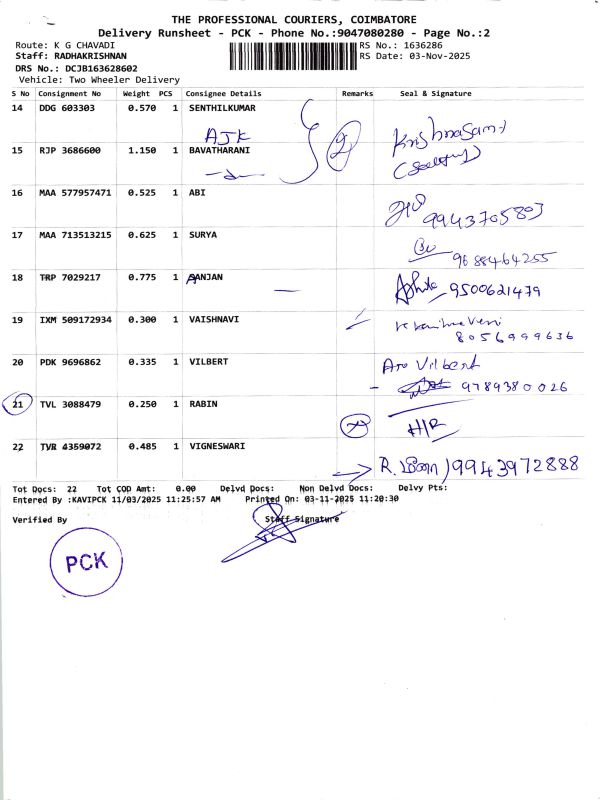 THE PROFESSIONAL COURIERS, COIMBATORE
Delivery Runsheet - PCK - Phone No.:9047080280 - Page No.:2
Route: K G CHAVADI
RS No.: 1636286
Staff: RADHAKRISHNAN
RS Date: 03-Nov-2025
DRS No.: DCJB163628602
Vehicle: Two Wheeler Delivery
S No Consignment No Weight PCS Consignee Details Remarks Seal & Signature
14 DDG 603303 0.570 1 SENTHILKUMAR
AJK
15 RJP 3686600 1.150 1 BAVATHARANI
16 MAA 577957471 0.525 1 ABI
9943705803
17 MAA 713513215 0.625 1 SURYA
9688464255
18 TRP 7029217 0.775 1 ANJAN
9500621479
19 IXM 509172934 0.300 1 VAISHNAVI
8056999636
20 PDK 9696862 0.335 1 VILBERT Aro Vilbert
9789380026
21 TVL 3088479 0.250 1 RABIN
H/R
22 TVR 4359072 0.485 1 VIGNESWARI
9943972888
Tot Docs: 22 Tot COD Amt: 0.00 Delvd Docs: Non Delvd Docs: Delvy Pts:
Entered By :KAVIPCK 11/03/2025 11:25:57 AM Printed On: 03-11-2025 11:20:30
Verified By Staff Signature
PCK